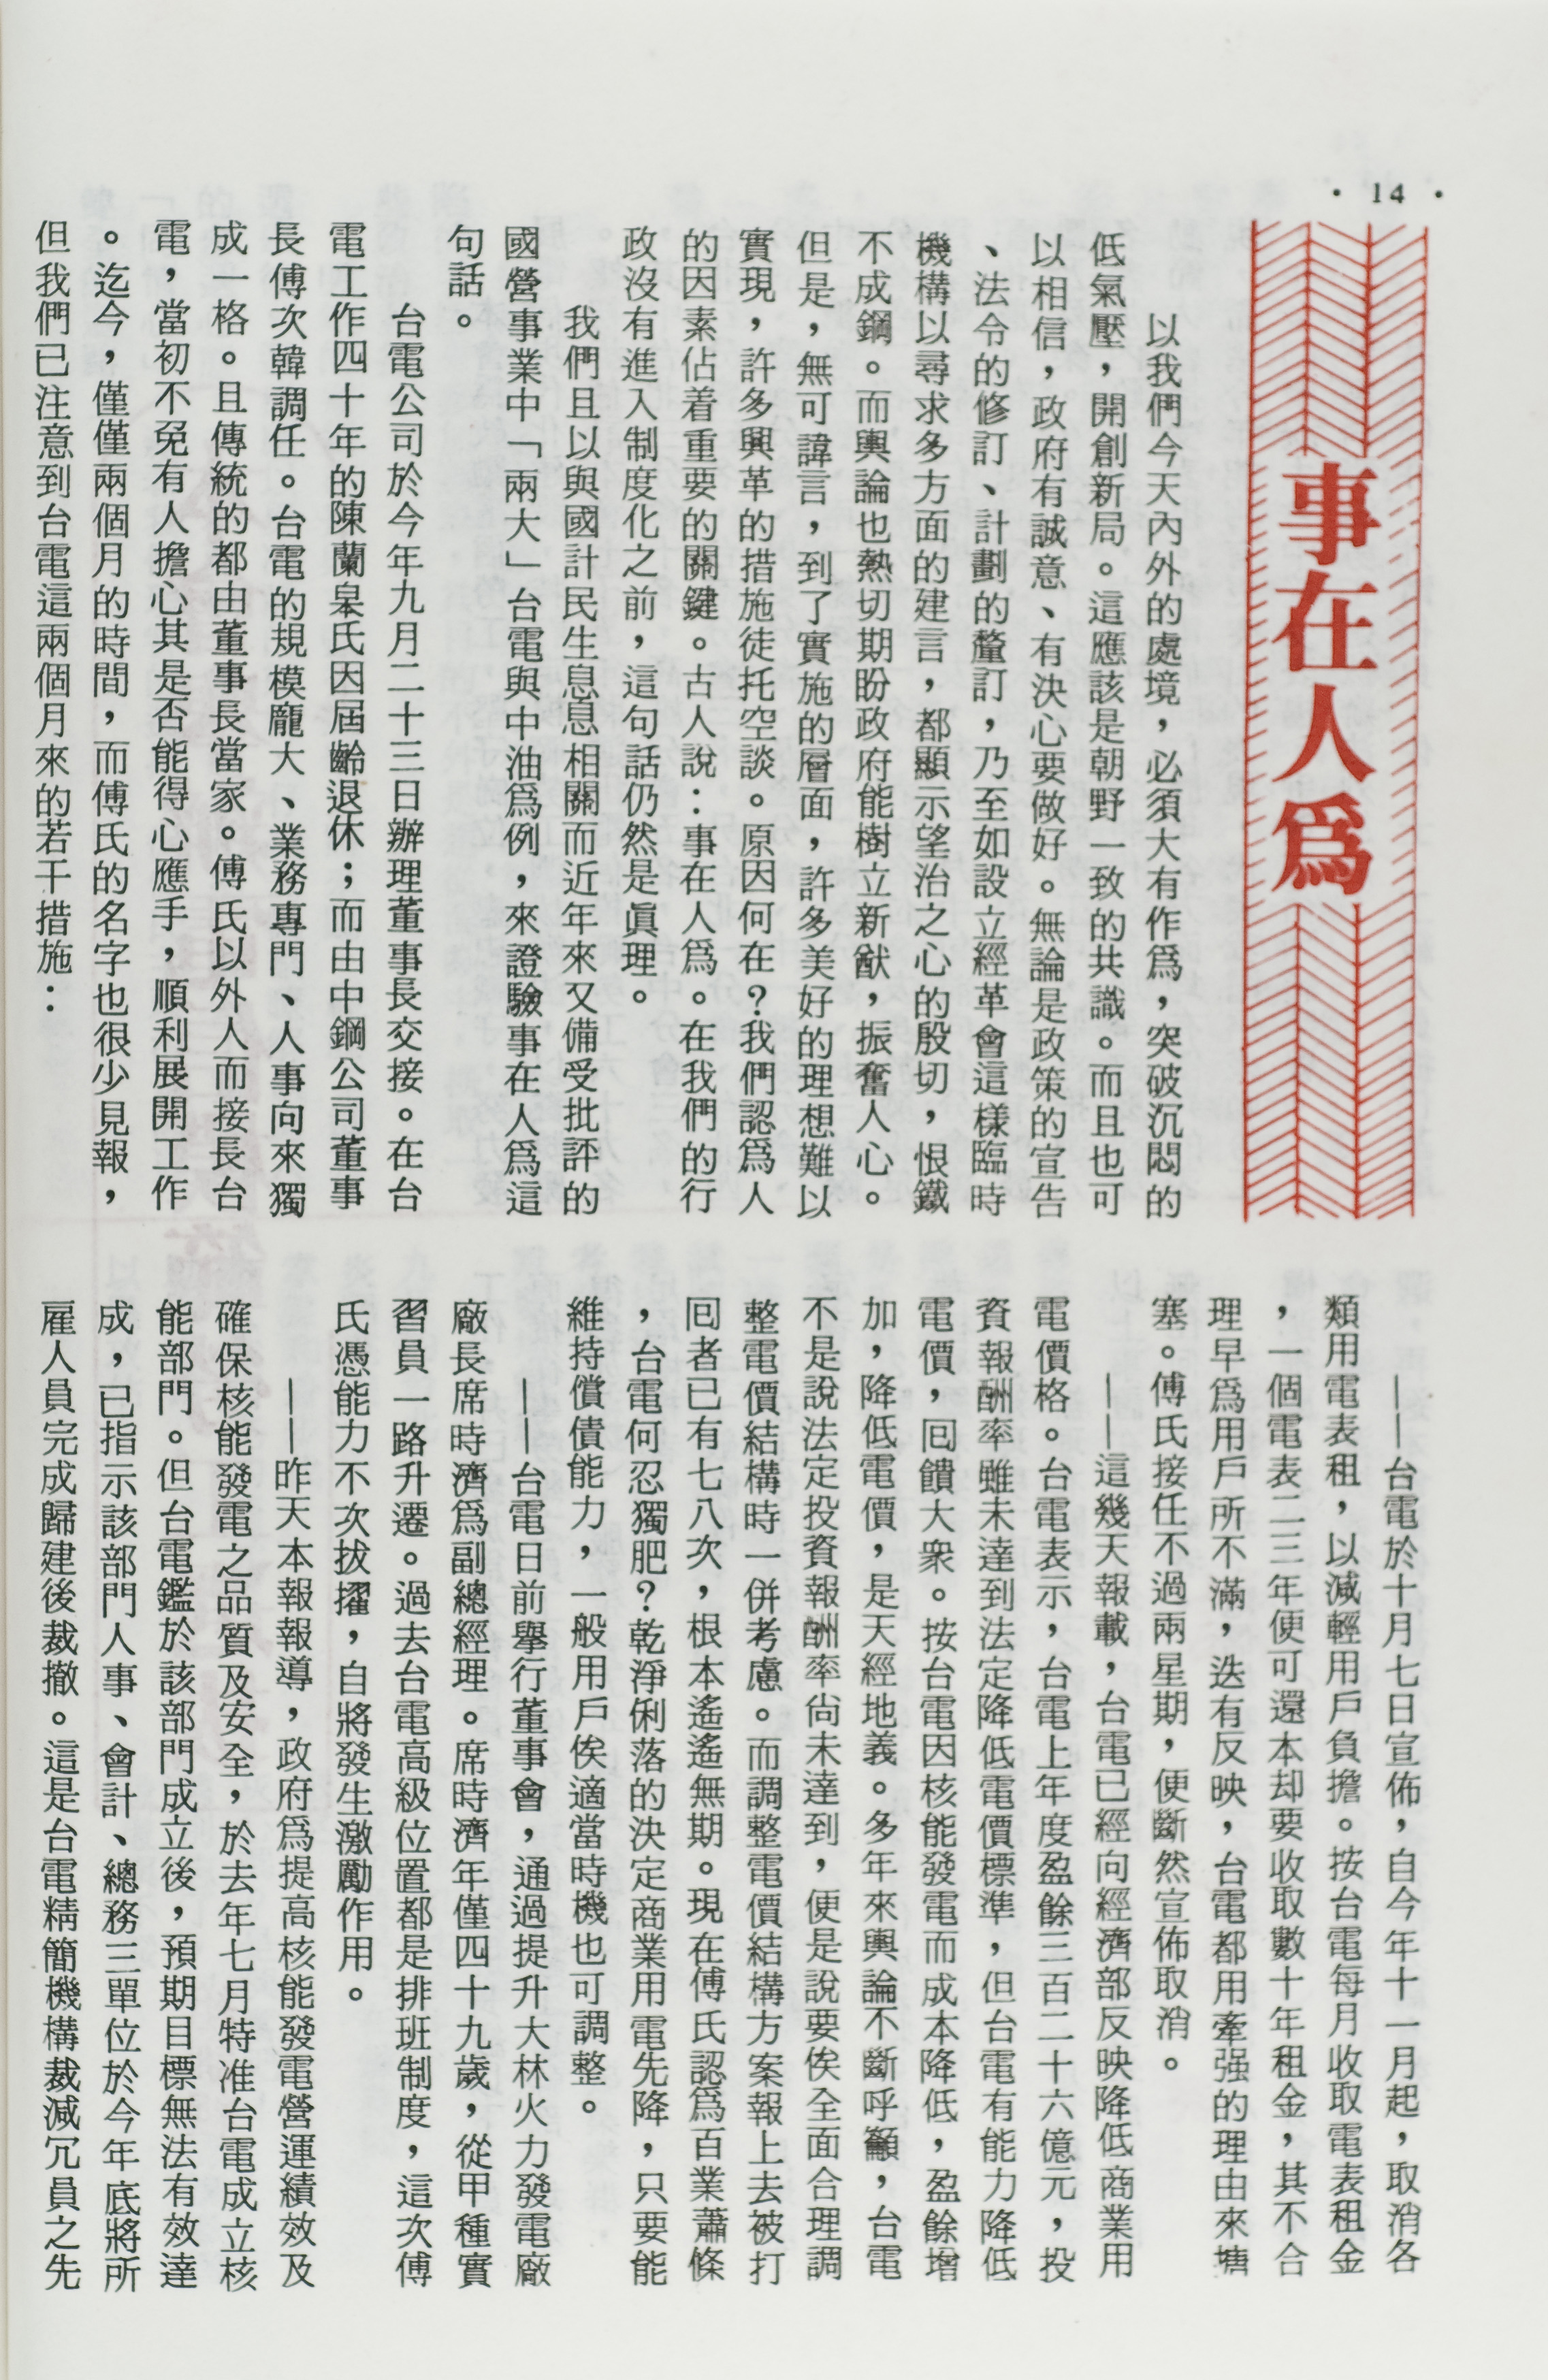 • 14 •
事在人爲
以我們今天內外的處境，必須大有作爲，突破沉悶的
低氣壓，開創新局。這應該是朝野一致的共識。而且也可
以相信，政府有誠意、有決心要做好。無論是政策的宣告
、法令的修訂、計劃的釐訂，乃至如設立經革會這樣臨時
機構以尋求多方面的建言，都顯示望治之心的殷切，恨鐵
不成鋼。而輿論也熱切期盼政府能樹立新猷，振奮人心。
但是，無可諱言，到了實施的層面，許多美好的理想難以
實現，許多興革的措施徒托空談。原因何在？我們認爲人
的因素佔着重要的關鍵。古人說：事在人爲。在我們的行
政沒有進入制度化之前，這句話仍然是眞理。
我們且以與國計民生息息相關而近年來又備受批評的
國營事業中「兩大」台電與中油爲例，來證驗事在人爲這
句話。
台電公司於今年九月二十三日辦理董事長交接。在台
電工作四十年的陳蘭皋氏因屆齡退休；而由中鋼公司董事
長傅次韓調任。台電的規模龐大、業務專門、人事向來獨
成一格。且傳統的都由董事長當家。傅氏以外人而接長台
電，當初不免有人擔心其是否能得心應手，順利展開工作
。迄今，僅僅兩個月的時間，而傅氏的名字也很少見報，
但我們已注意到台電這兩個月來的若干措施：
——台電於十月七日宣佈，自今年十一月起，取消各
類用電表租，以減輕用戶負擔。按台電每月收取電表租金
，一個電表二三年便可還本却要收取數十年租金，其不合
理早爲用戶所不滿，迭有反映，台電都用牽强的理由來搪
塞。傅氏接任不過兩星期，便斷然宣佈取消。
——這幾天報載，台電已經向經濟部反映降低商業用
電價格。台電表示，台電上年度盈餘三百二十六億元，投
資報酬率雖未達到法定降低電價標準，但台電有能力降低
電價，回饋大衆。按台電因核能發電而成本降低，盈餘增
加，降低電價，是天經地義。多年來輿論不斷呼籲，台電
不是說法定投資報酬率尙未達到，便是說要俟全面合理調
整電價結構時一併考慮。而調整電價結構方案報上去被打
回者已有七八次，根本遙遙無期。現在傅氏認爲百業蕭條
，台電何忍獨肥？乾淨俐落的決定商業用電先降，只要能
維持償債能力，一般用戶俟適當時機也可調整。
——台電日前舉行董事會，通過提升大林火力發電廠
廠長席時濟爲副總經理。席時濟年僅四十九歲，從甲種實
習員一路升遷。過去台電高級位置都是排班制度，這次傅
氏憑能力不次拔擢，自將發生激勵作用。
——昨天本報報導，政府爲提高核能發電營運績效及
確保核能發電之品質及安全，於去年七月特准台電成立核
能部門。但台電鑑於該部門成立後，預期目標無法有效達
成，已指示該部門人事、會計、總務三單位於今年底將所
雇人員完成歸建後裁撤。這是台電精簡機構裁減冗員之先